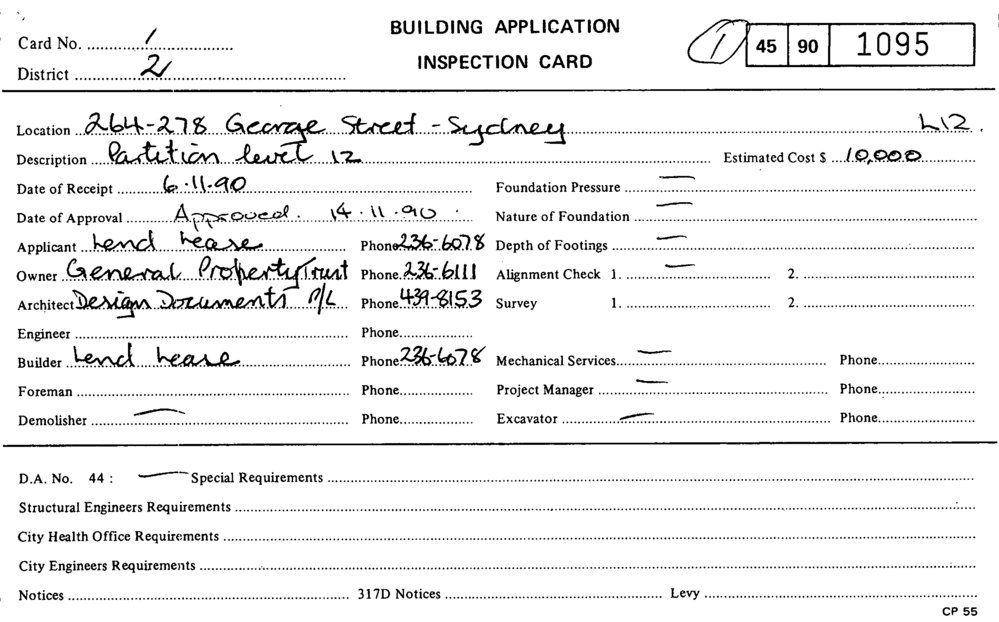 BUILDING APPLICATION
INSPECTION CARD
Card No. 1
District 2
1 45 90 1095
Location 264-278 George Street - Sydney L12.
Description Partition level 12 Estimated Cost $ 10,000
Date of Receipt 6.11.90 Foundation Pressure —
Date of Approval Approved. 14.11.90. Nature of Foundation —
Applicant Lend Lease Phone 236-6078 Depth of Footings —
Owner General Property Trust Phone 236-6111 Alignment Check 1. — 2.
Architect Design Documents P/L Phone 439-8153 Survey 1. 2.
Engineer Phone
Builder Lend Lease Phone 236-6078 Mechanical Services — Phone
Foreman Phone Project Manager — Phone
Demolisher — Phone Excavator — Phone
D.A. No. 44 : — Special Requirements
Structural Engineers Requirements
City Health Office Requirements
City Engineers Requirements
Notices 317D Notices Levy
CP 55